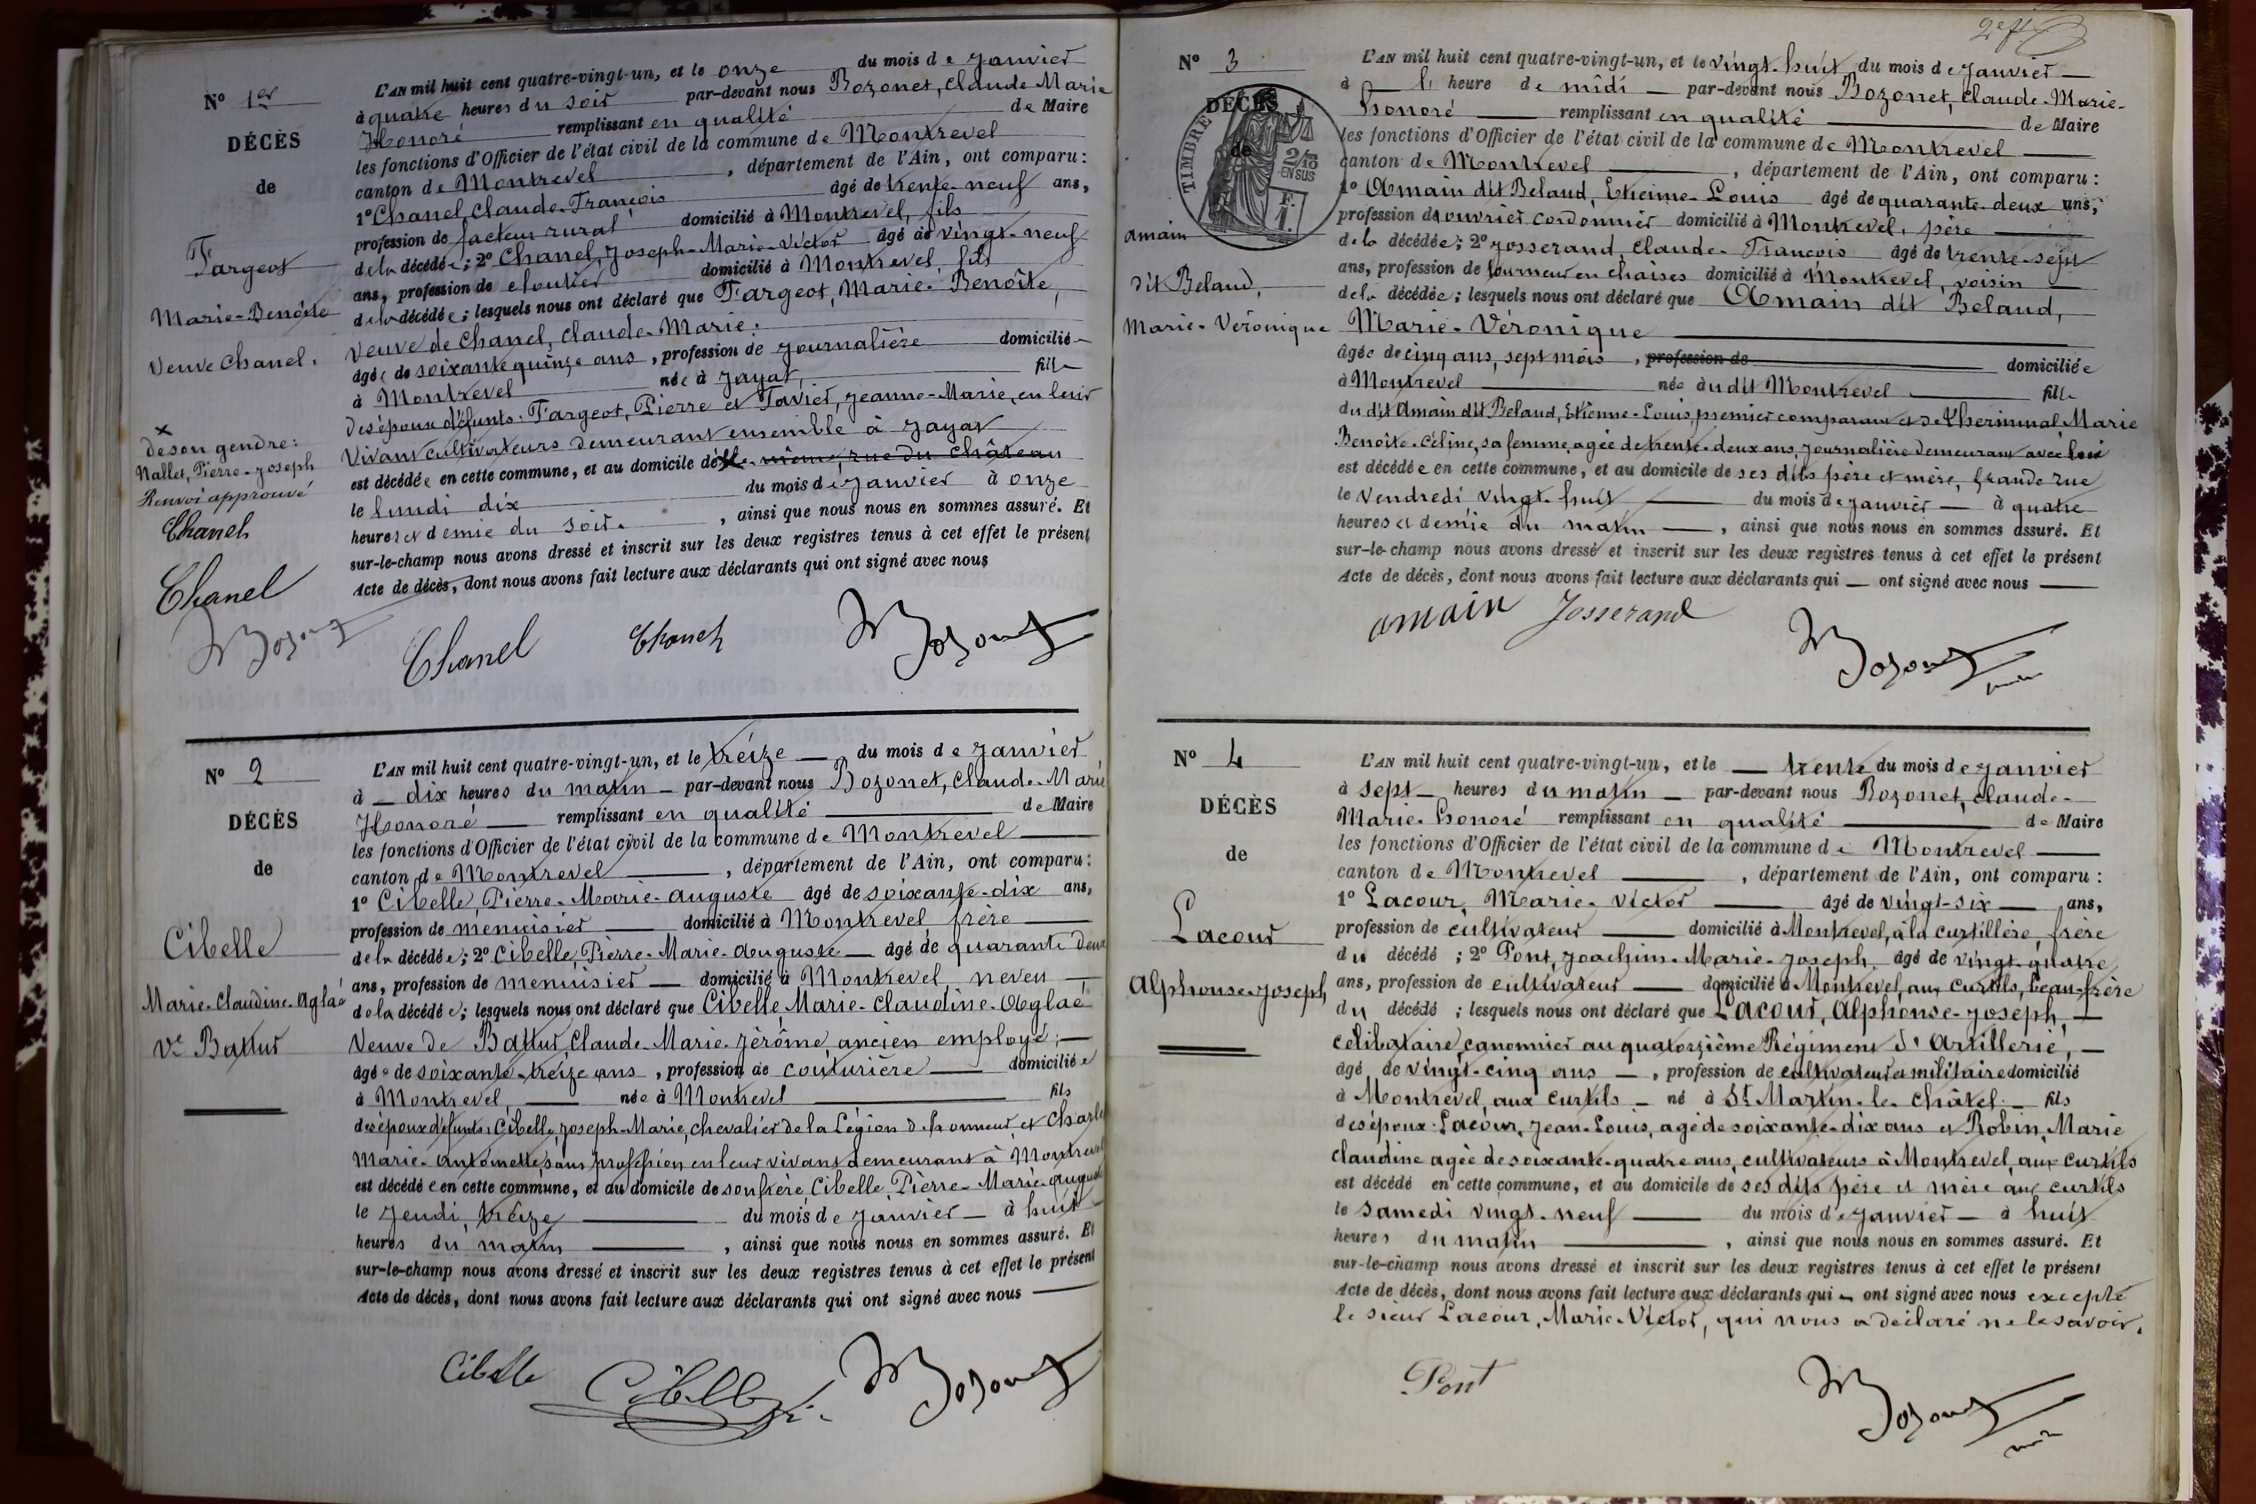 N° 1er
DÉCÈS
de
Fargeot
Marie-Benoîte
Veuve Chanel.
L'AN mil huit cent quatre-vingt-un, et le onze du mois de Janvier
à quatre heures du soir par-devant nous Bozonet, Claude-Marie
Honoré remplissant en qualité de Maire
les fonctions d'Officier de l'état civil de la commune de Montrevel
canton de Montrevel, département de l'Ain, ont comparu:
1° Chanel, Claude-François âgé de trente-neuf ans,
profession de facteur rural domicilié à Montrevel, fils
de la décédée; 2° Chanel, Joseph-Marie-Victor âgé de vingt-neuf
ans, profession de cloutier domicilié à Montrevel, fils
de la décédée; lesquels nous ont déclaré que Fargeot, Marie-Benoîte,
Veuve de Chanel, Claude-Marie;
âgée de soixante quinze ans, profession de Journalière domiciliée
à Montrevel née à Jayat, fille
des époux défunts: Fargeot, Pierre et Tavier, Jeanne-Marie, en leur
Vivant cultivateurs demeurant ensemble à Jayat
est décédée en cette commune, et au domicile d'elle-même, rue du Château
le lundi dix du mois de Janvier à onze
heures et demie du soir, ainsi que nous nous en sommes assuré. Et
sur-le-champ nous avons dressé et inscrit sur les deux registres tenus à cet effet le présent
Acte de décès, dont nous avons fait lecture aux déclarants qui ont signé avec nous
x
de son gendre:
Nallet, Pierre-Joseph
Renvoi approuvé
Chanel
Chanel
Bozonet
Chanel Chanel Bozonet
N° 2
DÉCÈS
de
Cibelle
Marie-Claudine-Aglaé
Ve Battur
L'AN mil huit cent quatre-vingt-un, et le treize du mois de Janvier
à dix heures du matin par-devant nous Bozonet, Claude-Marie
Honoré remplissant en qualité de Maire
les fonctions d'Officier de l'état civil de la commune de Montrevel
canton de Montrevel, département de l'Ain, ont comparu:
1° Cibelle, Pierre-Marie-Auguste âgé de soixante-dix ans,
profession de menuisier domicilié à Montrevel, frère
de la décédée; 2° Cibelle, Pierre-Marie-Auguste âgé de quarante deux
ans, profession de menuisier domicilié à Montrevel, neveu
de la décédée; lesquels nous ont déclaré que Cibelle, Marie-Claudine-Aglaé
Veuve de Battur, Claude-Marie-Jérôme, ancien employé;
âgée de soixante-treize ans, profession de couturière domiciliée
à Montrevel, née à Montrevel fils
des époux défunts: Cibelle, Joseph-Marie, chevalier de la Légion d'honneur et Charle
Marie-Antoinette, sans profession en leur vivant demeurant à Montrevel
est décédée en cette commune, et au domicile de son frère, Cibelle, Pierre-Marie-Auguste
le Jeudi, treize du mois de Janvier à huit
heures du matin, ainsi que nous nous en sommes assuré. Et
sur-le-champ nous avons dressé et inscrit sur les deux registres tenus à cet effet le présent
Acte de décès, dont nous avons fait lecture aux déclarants qui ont signé avec nous
Cibelle Cibelle Bozonet
N° 3
DÉCÈS
de
TIMBRE
2/10
EN SUS
F.
1.
Amain
dit Beland,
Marie-Véronique
L'AN mil huit cent quatre-vingt-un, et le vingt-huit du mois de Janvier
à l' heure de midi par-devant nous Bozonet, Claude-Marie-
Honoré remplissant en qualité de Maire
les fonctions d'Officier de l'état civil de la commune de Montrevel
canton de Montrevel, département de l'Ain, ont comparu:
1° Amain dit Beland, Etienne-Louis âgé de quarante-deux ans,
profession d'ouvrier cordonnier domicilié à Montrevel, père
de la décédée; 2° Josserand, Claude-François âgé de trente-sept
ans, profession de tourneur en chaises domicilié à Montrevel, voisin
de la décédée; lesquels nous ont déclaré que Amain dit Beland,
Marie-Véronique
âgée de cinq ans, sept mois, profession de domiciliée
à Montrevel née au dit Montrevel fille
du dit Amain dit Beland, Etienne-Louis, premier comparant et de Therminal, Marie
Benoîte-Céline, sa femme, agée de trente-deux ans, Journalière demeurant avec lui
est décédée en cette commune, et au domicile de ses dits père et mère, grande rue
le Vendredi vingt-huit du mois de Janvier à quatre
heures et demie du matin, ainsi que nous nous en sommes assuré. Et
sur-le-champ nous avons dressé et inscrit sur les deux registres tenus à cet effet le présent
Acte de décès, dont nous avons fait lecture aux déclarants qui ont signé avec nous
amain Josserand Bozonet
N° 4
DÉCÈS
de
Lacour
Alphonse-Joseph
L'AN mil huit cent quatre-vingt-un, et le trente du mois de Janvier
à sept heures du matin par-devant nous Bozonet, Claude-
Marie-Honoré remplissant en qualité de Maire
les fonctions d'Officier de l'état civil de la commune de Montrevel
canton de Montrevel, département de l'Ain, ont comparu:
1° Lacour, Marie-Victor âgé de vingt-six ans,
profession de cultivateur domicilié à Montrevel, à la Curtillère, frère
du décédé; 2° Pont, Joachim-Marie-Joseph âgé de vingt-quatre
ans, profession de cultivateur domicilié à Montrevel, aux Curtils, beau-frère
du décédé; lesquels nous ont déclaré que Lacour, Alphonse-Joseph,
célibataire, canonnier au quatorzième Régiment d'Artillerie,
âgé de vingt-cinq ans, profession de cultivateur et militaire domicilié
à Montrevel, aux Curtils né à St Martin-le-Châtel fils
des époux: Lacour, Jean-Louis, agé de soixante-dix ans et Robin, Marie
Claudine agée de soixante-quatre ans, cultivateurs à Montrevel, aux Curtils
est décédé en cette commune, et au domicile de ses dits père et mère aux Curtils
le samedi vingt-neuf du mois de Janvier à huit
heures du matin, ainsi que nous nous en sommes assuré. Et
sur-le-champ nous avons dressé et inscrit sur les deux registres tenus à cet effet le présent
Acte de décès, dont nous avons fait lecture aux déclarants qui ont signé avec nous excepté
le sieur Lacour, Marie-Victor, qui nous a déclaré ne le savoir.
Pont Bozonet